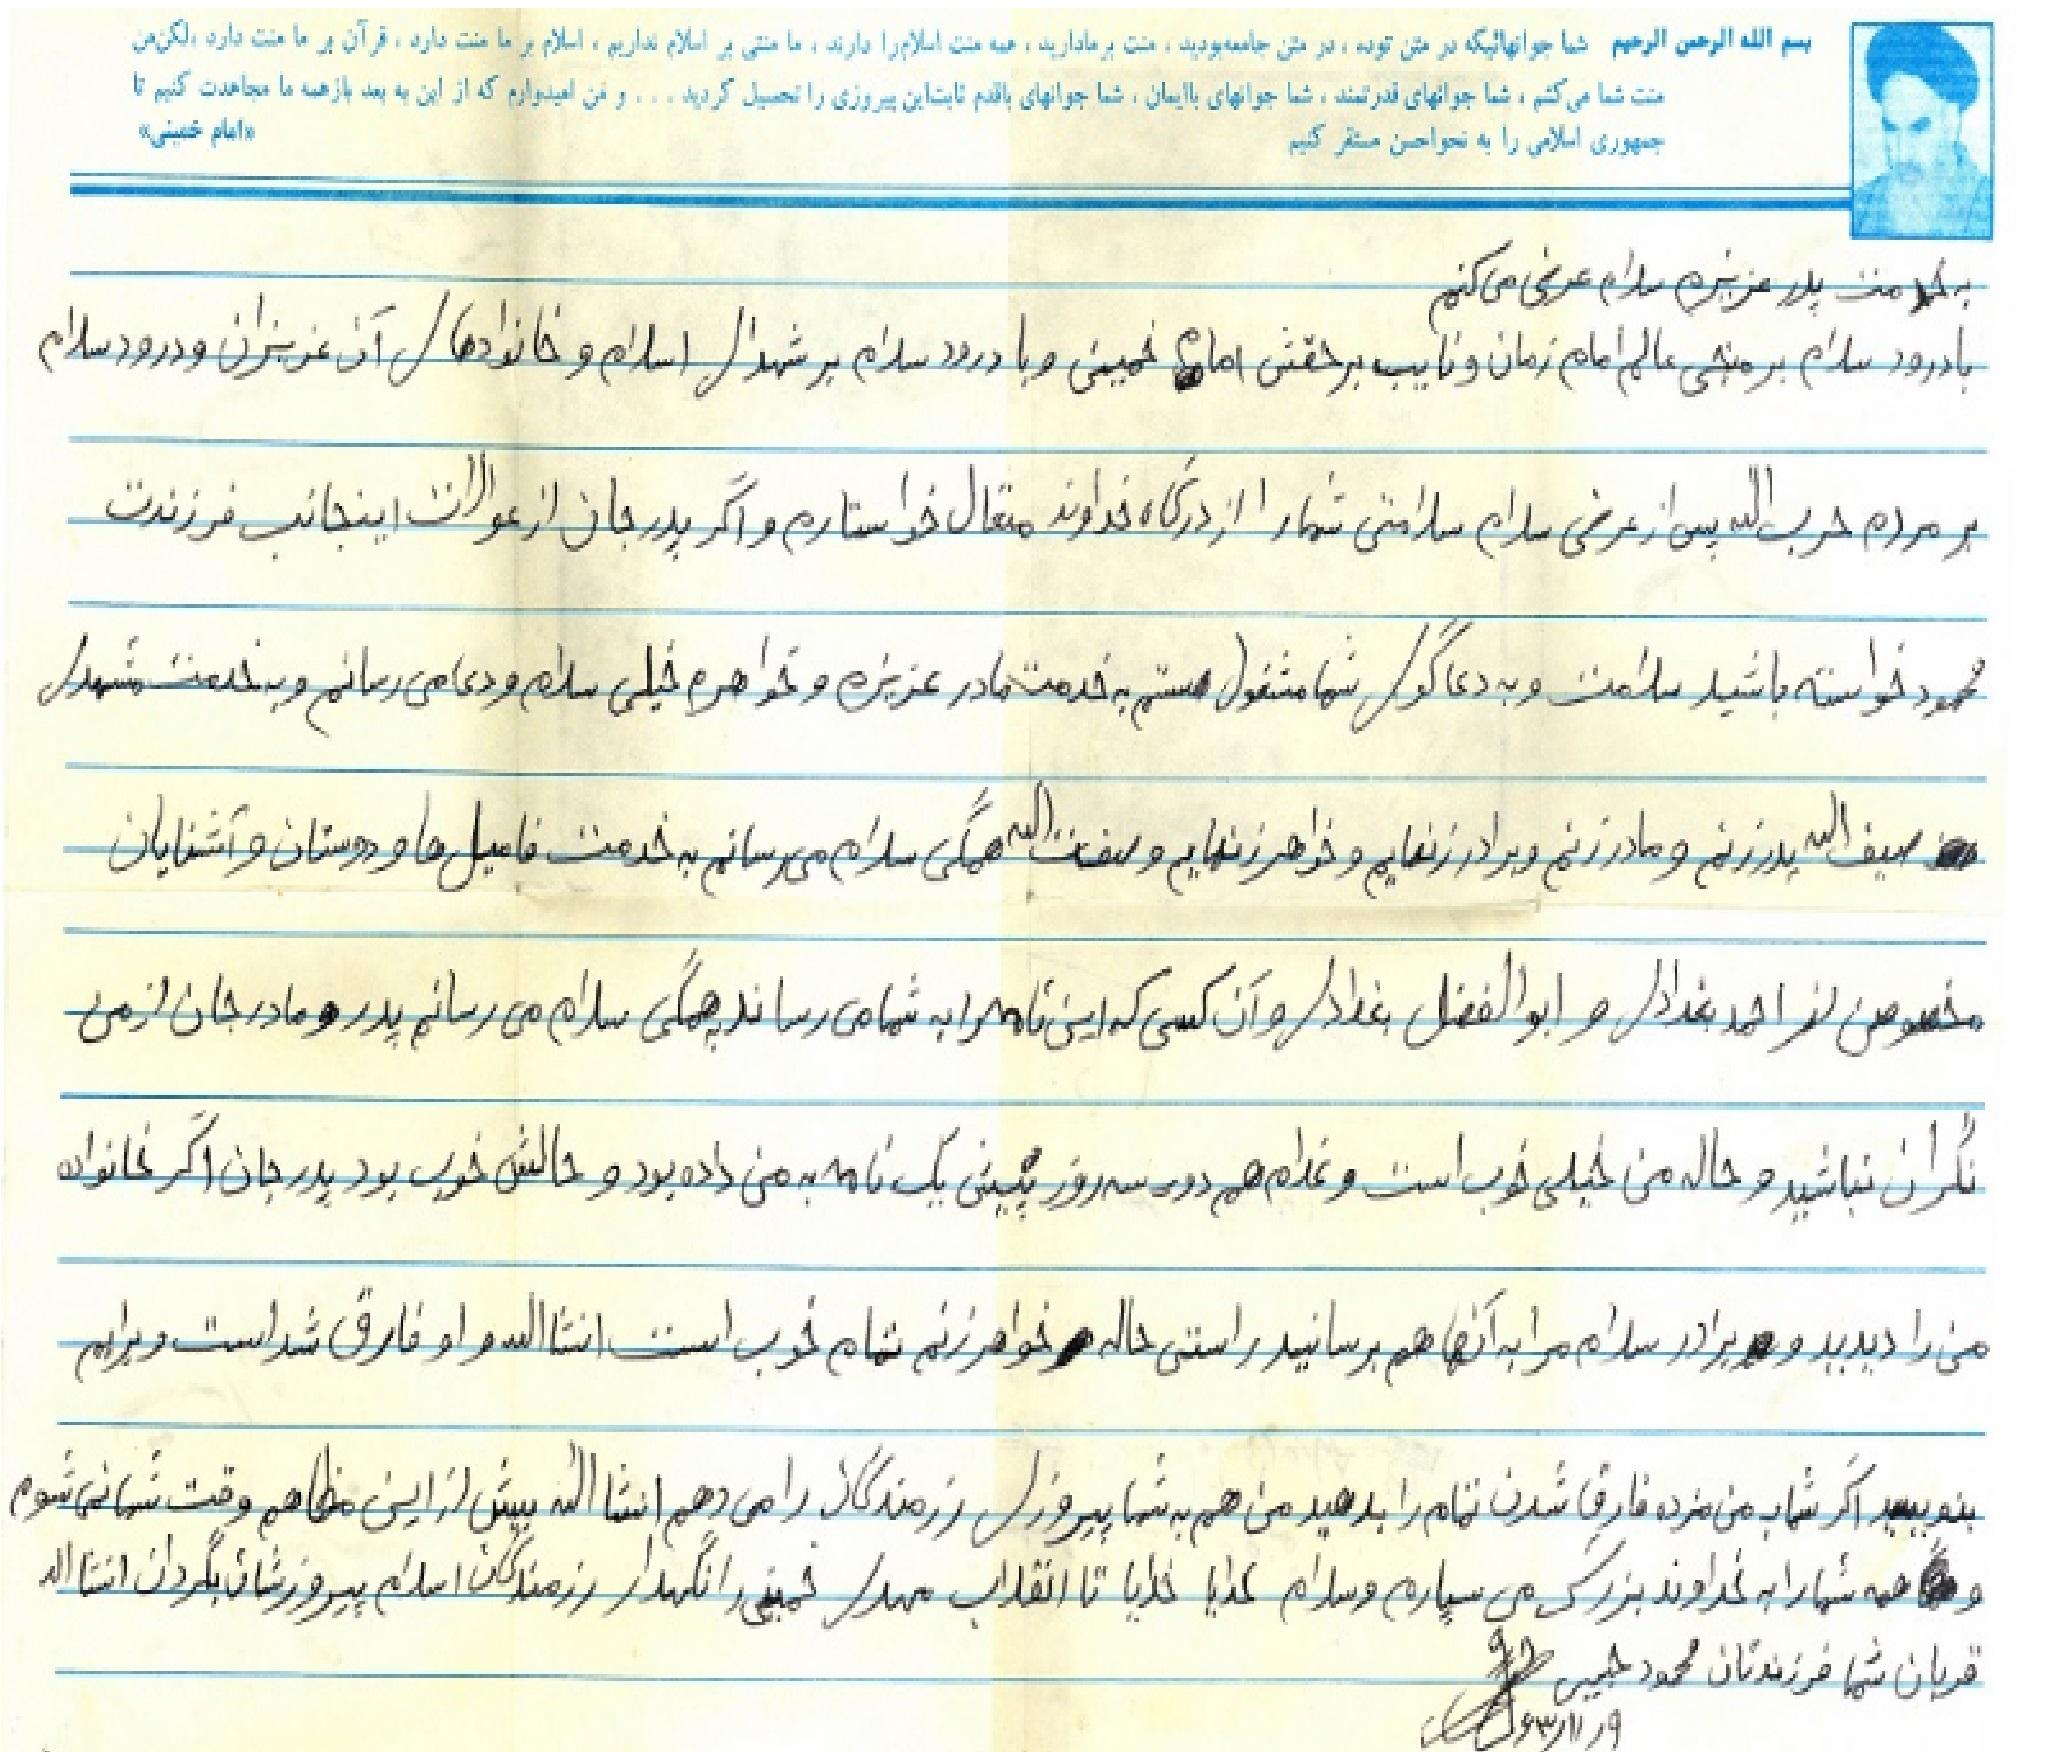 بسم الله الرحمن الرحیم شما جوانهائیکه در متن توده ، در متن جامعه بودید ، منت بر ما دارید ، همه منت اسلام را دارند ، ما منتی بر اسلام نداریم ، اسلام بر ما منت دارد ، قرآن بر ما منت دارد ، لکن من
منت شما می کشم ، شما جوانهای قدرتمند ، شما جوانهای باایمان ، شما جوانهای باقدم ثابت این پیروزی را تحصیل کردید ... و من امیدوارم که از این به بعد باز همه ما مجاهدت کنیم تا
جمهوری اسلامی را به نحو احسن مستقر کنیم «امام خمینی»
به خدمت پدر عزیزم سلام عرض می کنم
با درود سلام بر منجی عالم امام زمان و نایب برحقش امام خمینی و با درود سلام بر شهدای اسلام و خانوادهای آن عزیزان و درود سلام
بر مردم حزب الله پس از عرض سلام سلامتی شما را از درگاه خداوند متعال خواستارم و اگر پدر جان از عوالات اینجانب فرزندت
محمود خواسته باشید سلامت و به دعاگوی شما مشغول هستم به خدمت مادر عزیزم و خواهرم خیلی سلام و دعا می رسانم و به خدمت مشهدی
سیف الله پدرزنم و مادرزنم و برادرزنهایم و خواهرزنهایم و صفت الله همگی سلام می رسانم به خدمت فامیل ها و دوستان و آشنایان
مخصوص از احمد بغدادی و ابوالفضل بغدادی و آن کسی که این نامه را به شما می رساند همگی سلام می رسانم پدر و مادر جان از من
نگران نباشید و حاله من خیلی خوب است و غلام هم دو سه روز پیش یک نامه به من داده بود و حالش خوب بود پدر جان اگر خانواده
من را دیدید و برادر سلام مرا به آنها هم برسانید راستی حاله خواهرزنم تمام خوب است انشاالله و او فارق شد است و برایم
بنویسید اگر شما به من مزده فارق شدن تمام را بدهید من هم به شما پیروزی رزمندگان را می دهم انشا الله بیش از این مظاهم وقت شما نمی شوم
و همه شما را به خداوند بزرگ می سپارم و سلام خدایا خدایا تا انقلاب مهدی خمینی را نگهدار رزمندگان اسلام پیروزشان بگردان انشا الله
قربان شما فرزندتان محمود حبیبی
۶۳/۱۱/۹